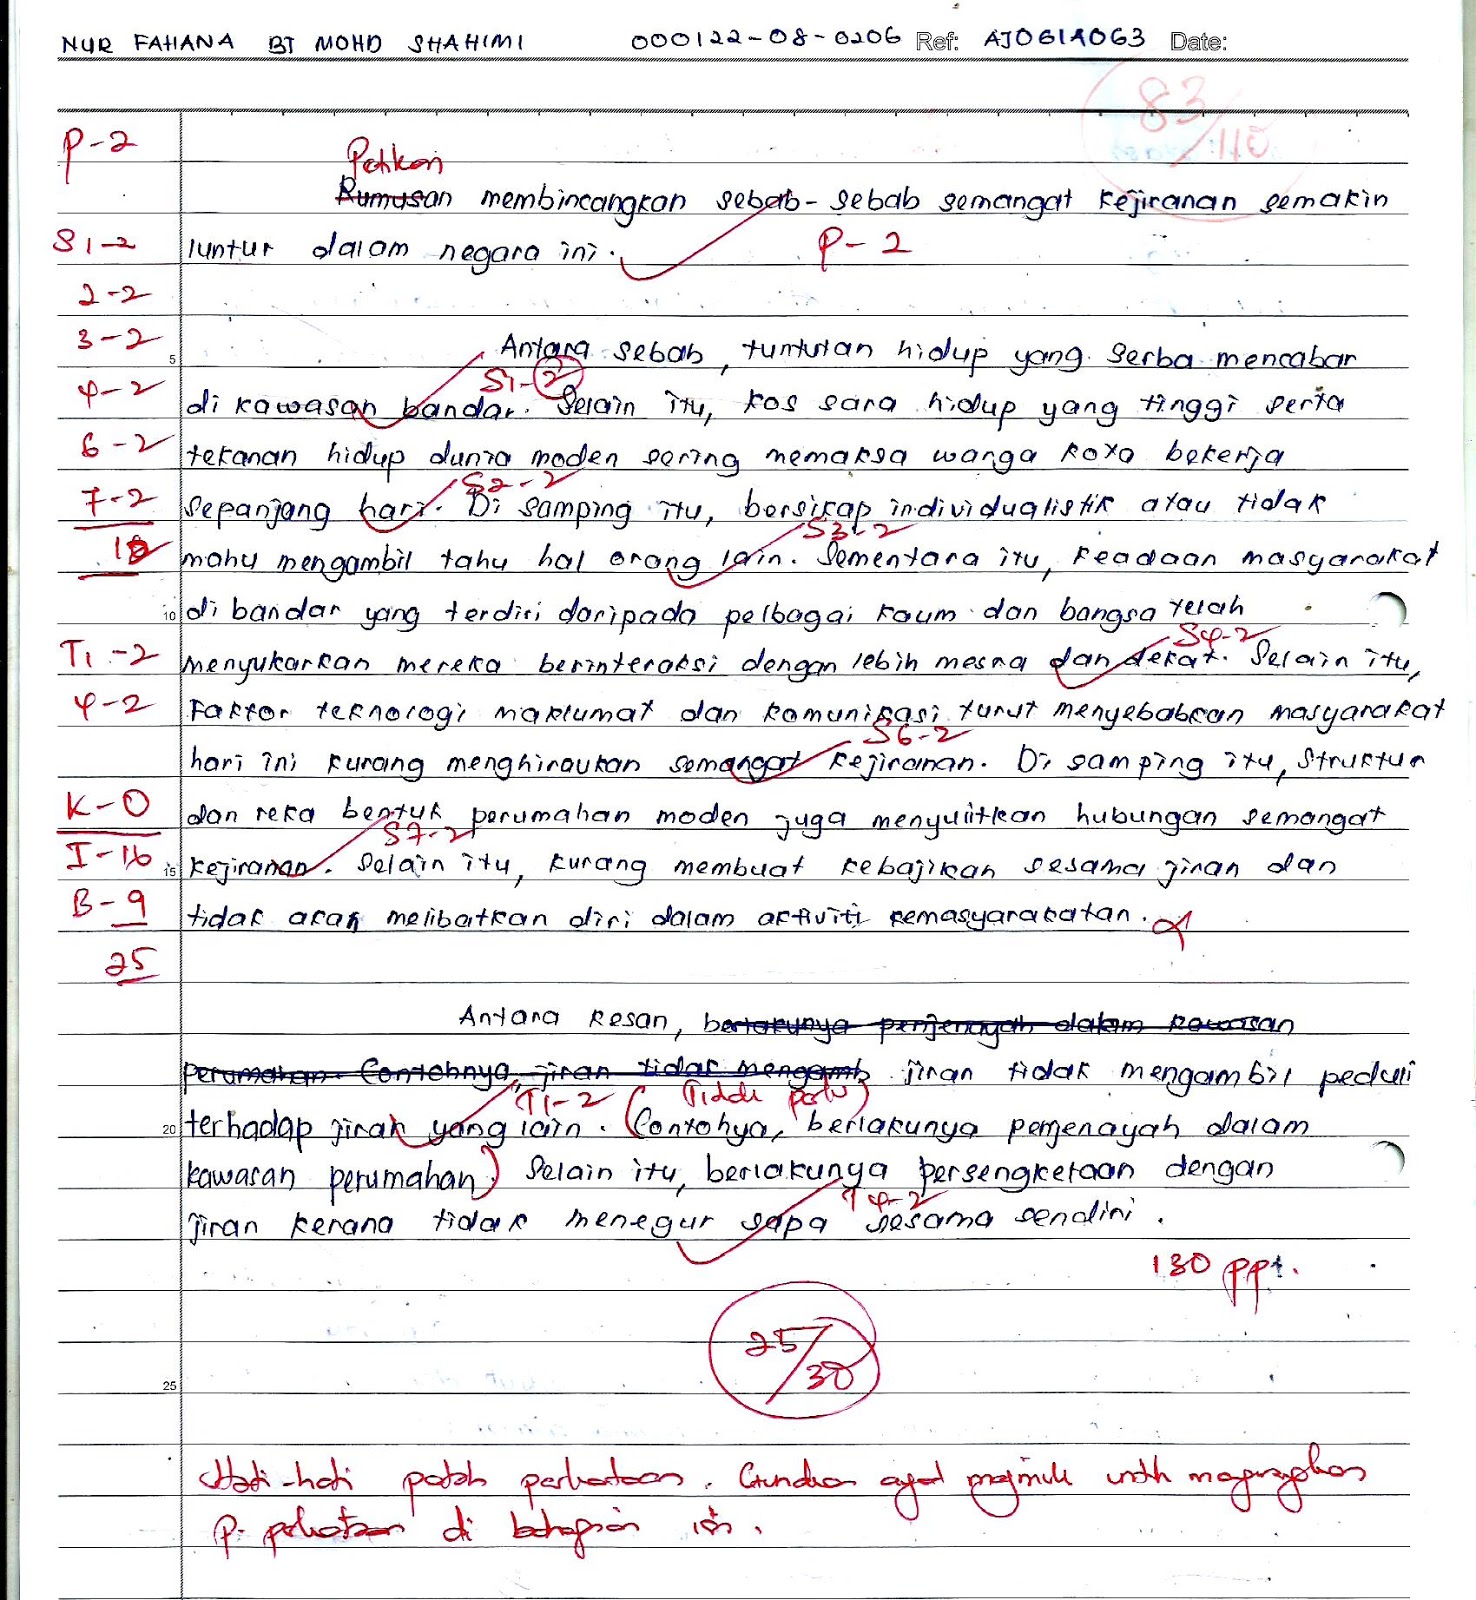 NUR FAHANA BT MOHD SHAHIMI 000122-08-0206 Ref: AJ061A063 Date:
83/110
P-2
Petikan
Rumusan membincangkan sebab-sebab semangat kejiranan semakin
S1-2 luntur dalam negara ini. P-2
2-2
3-2
5 Antara sebab, tuntutan hidup yang serba mencabar
4-2 S1-2
di kawasan bandar. Selain itu, kos sara hidup yang tinggi serta
6-2 tekanan hidup dunia moden sering memaksa warga kota bekerja
S2-2
7-2 sepanjang hari. Di samping itu, bersikap individualistik atau tidak
S3-2
18 mahu mengambil tahu hal orang lain. Sementara itu, keadaan masyarakat
10 di bandar yang terdiri daripada pelbagai kaum dan bangsa telah
S4-2
T1-2 menyukarkan mereka berinteraksi dengan lebih mesra dan dekat. Selain itu,
4-2 Faktor teknologi maklumat dan komunikasi turut menyebabkan masyarakat
S6-2
hari ini kurang menghiraukan semangat kejiranan. Di samping itu, struktur
K-0 dan reka bentuk perumahan moden juga menyulitkan hubungan semangat
S7-2
I-16 15 kejiranan. Selain itu, kurang membuat kebajikan sesama jiran dan
B-9 tidak akan melibatkan diri dalam aktiviti kemasyarakatan.
25
Antara kesan, berlakunya penjenayah dalam kawasan
perumahan Contohnya, jiran tidak mengamb jiran tidak mengambil peduli
T1-2 (Tidak perlu)
20 terhadap jiran yang lain. (Contohya, berlakunya penjenayah dalam
kawasan perumahan.) Selain itu, berlakunya persengketaan dengan
T4-2
jiran kerana tidak menegur sapa sesama sendiri.
130 ppt.
25/30
25
Hati-hati patah perkataan. Gunakan ayat majmuk untuk
P. perkataan di bahagian isi.